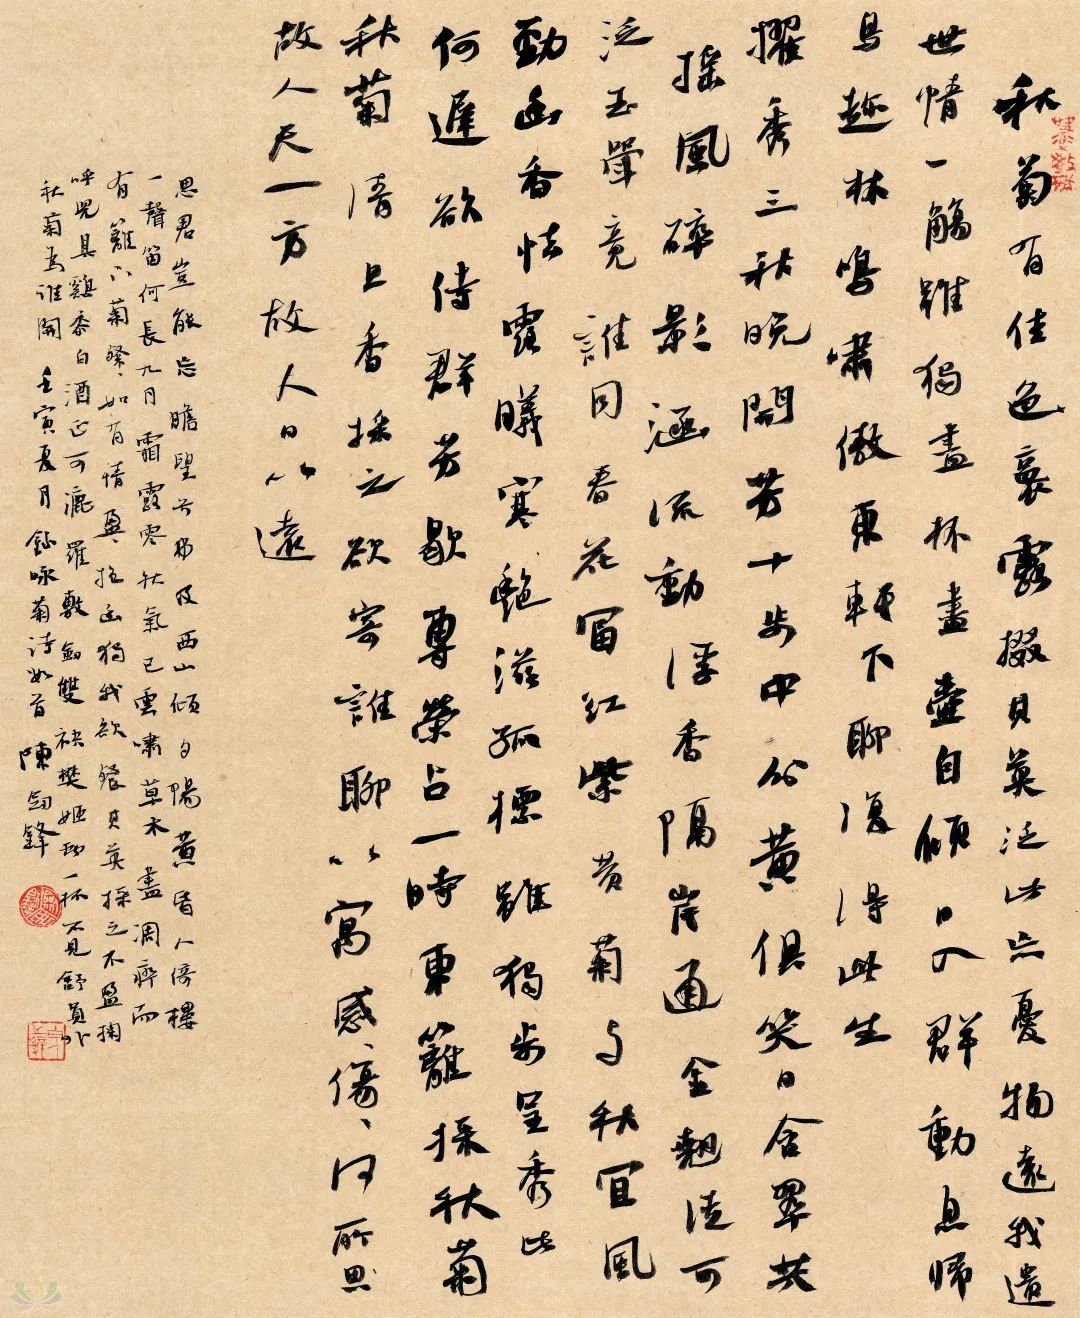 秋菊有佳色裛露掇其英泛此忘憂物遠我遺
世情一觴雖獨盡杯盡壺自傾日入群動息歸
鳥趨林鳴嘯傲東軒下聊復得此生
擢秀三秋晚開芳十步中分黃俱笑日含翠共
搖風碎影涵流動浮香隔岸通金翹徒可
泛玉斝竟誰同春花宜紅紫黄菊与秋宜風
勁幽香怯露曦寒艷滋孤標雖獨步呈秀此
何遲欲待群芳歇尊榮占一時東籬採秋菊
秋菊清且香採之欲寄誰聊以寫感傷、何所思
故人天一方故人日以遠
思君豈能忘瞻望兮弗及西山傾夕陽黄昏人倚樓
一聲笛何長九月霜露零秋氣已云肅草木盡凋瘁而
有籬下菊粲、如有情盈、抱幽獨我欲餐其英採之不盈掬
呼兒具鷄黍白酒正可漉羅敷劍雙袂樊姬勸一杯不見舒員外
秋菊為誰開 壬寅夏月錄咏菊诗如首 陳劍鋒